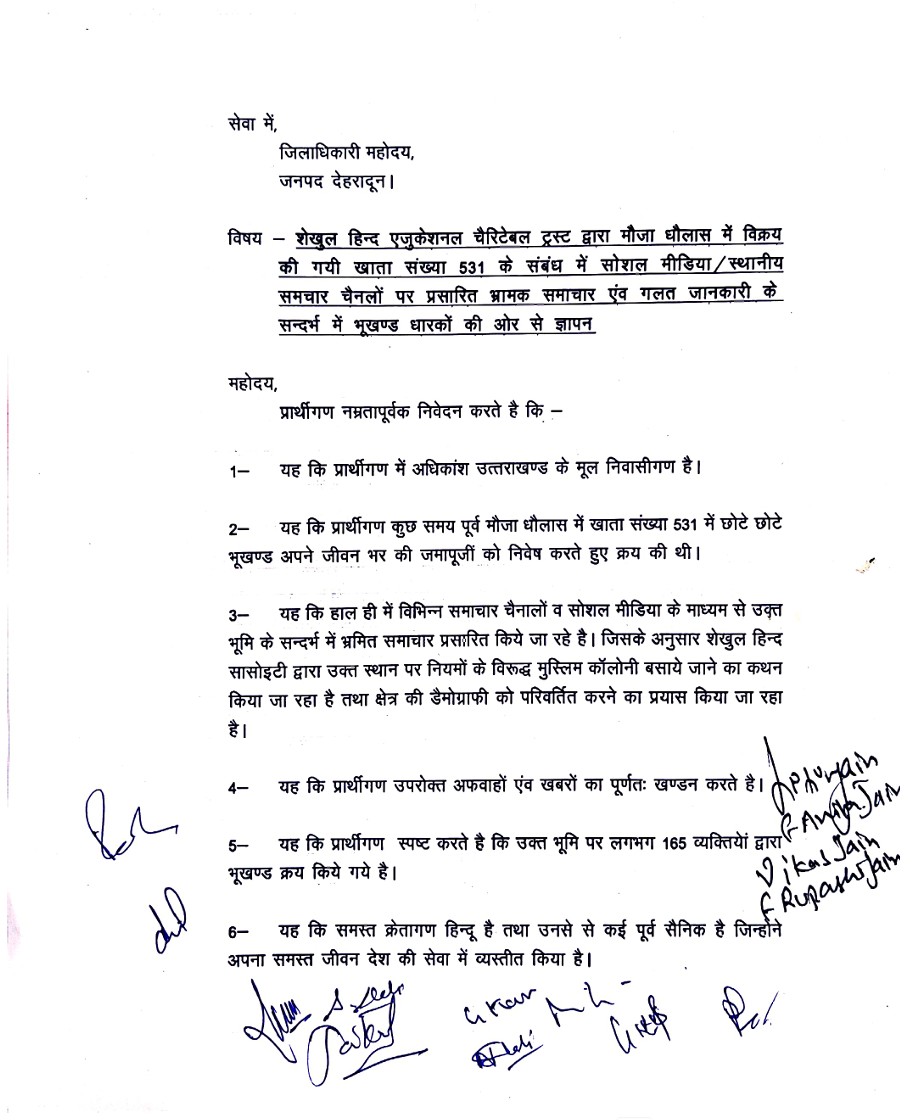 सेवा में,
जिलाधिकारी महोदय,
जनपद देहरादून।
विषय – शेखुल हिन्द एजुकेशनल चैरिटेबल ट्रस्ट द्वारा मौजा धौलास में विक्रय
की गयी खाता संख्या 531 के संबंध में सोशल मीडिया/स्थानीय
समचार चैनलों पर प्रसारित भ्रामक समाचार एंव गलत जानकारी के
सन्दर्भ में भूखण्ड धारकों की ओर से ज्ञापन
महोदय,
प्रार्थीगण नम्रतापूर्वक निवेदन करते है कि –
1– यह कि प्रार्थीगण में अधिकांश उत्तराखण्ड के मूल निवासीगण है।
2– यह कि प्रार्थीगण कुछ समय पूर्व मौजा धौलास में खाता संख्या 531 में छोटे छोटे
भूखण्ड अपने जीवन भर की जमापूजीं को निवेष करते हुए क्रय की थी।
3– यह कि हाल ही में विभिन्न समाचार चैनालों व सोशल मीडिया के माध्यम से उक्त
भूमि के सन्दर्भ में भ्रमित समाचार प्रसारित किये जा रहे है। जिसके अनुसार शेखुल हिन्द
सासोइटी द्वारा उक्त स्थान पर नियमों के विरूद्ध मुस्लिम कॉलोनी बसाये जाने का कथन
किया जा रहा है तथा क्षेत्र की डैमोग्राफी को परिवर्तित करने का प्रयास किया जा रहा
है।
4– यह कि प्रार्थीगण उपरोक्त अफवाहों एंव खबरों का पूर्णतः खण्डन करते है।
5– यह कि प्रार्थीगण स्पष्ट करते है कि उक्त भूमि पर लगभग 165 व्यक्तियों द्वारा
भूखण्ड क्रय किये गये है।
6– यह कि समस्त क्रेतागण हिन्दू है तथा उनसे से कई पूर्व सैनिक है जिन्होंने
अपना समस्त जीवन देश की सेवा में व्यस्तीत किया है।
Vikas Jain